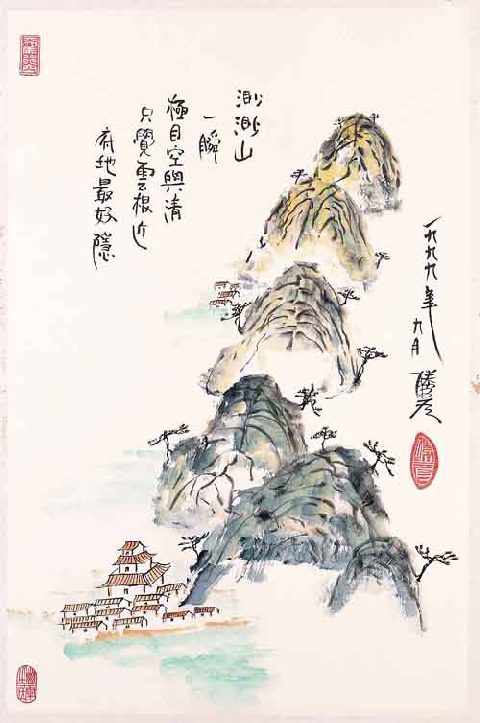 渺渺山
一瞬
極目空與清
只覺雲根近
有地最好隱
一九九九年
九月